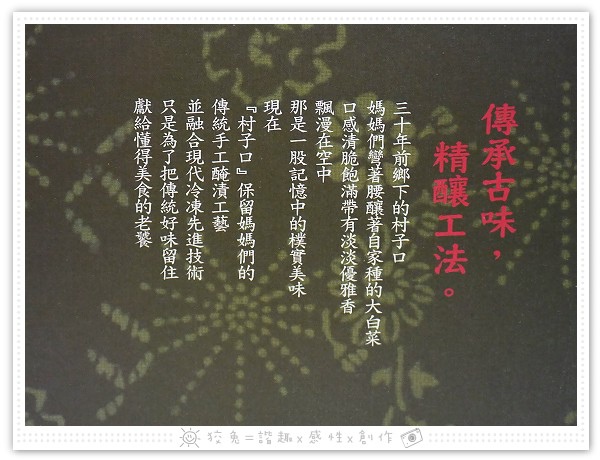 傳承古味，
精釀工法。
三十年前鄉下的村子口
媽媽們彎著腰釀著自家種的大白菜
口感清脆飽滿帶有淡淡優雅香
飄漫在空中
那是一股記憶中的樸實美味
現在
『村子口』保留媽媽們的
傳統手工醃漬工藝
並融合現代冷凍先進技術
只是為了把傳統好味留住
獻給懂得美食的老饕
狡兔=諧趣x感性x創作